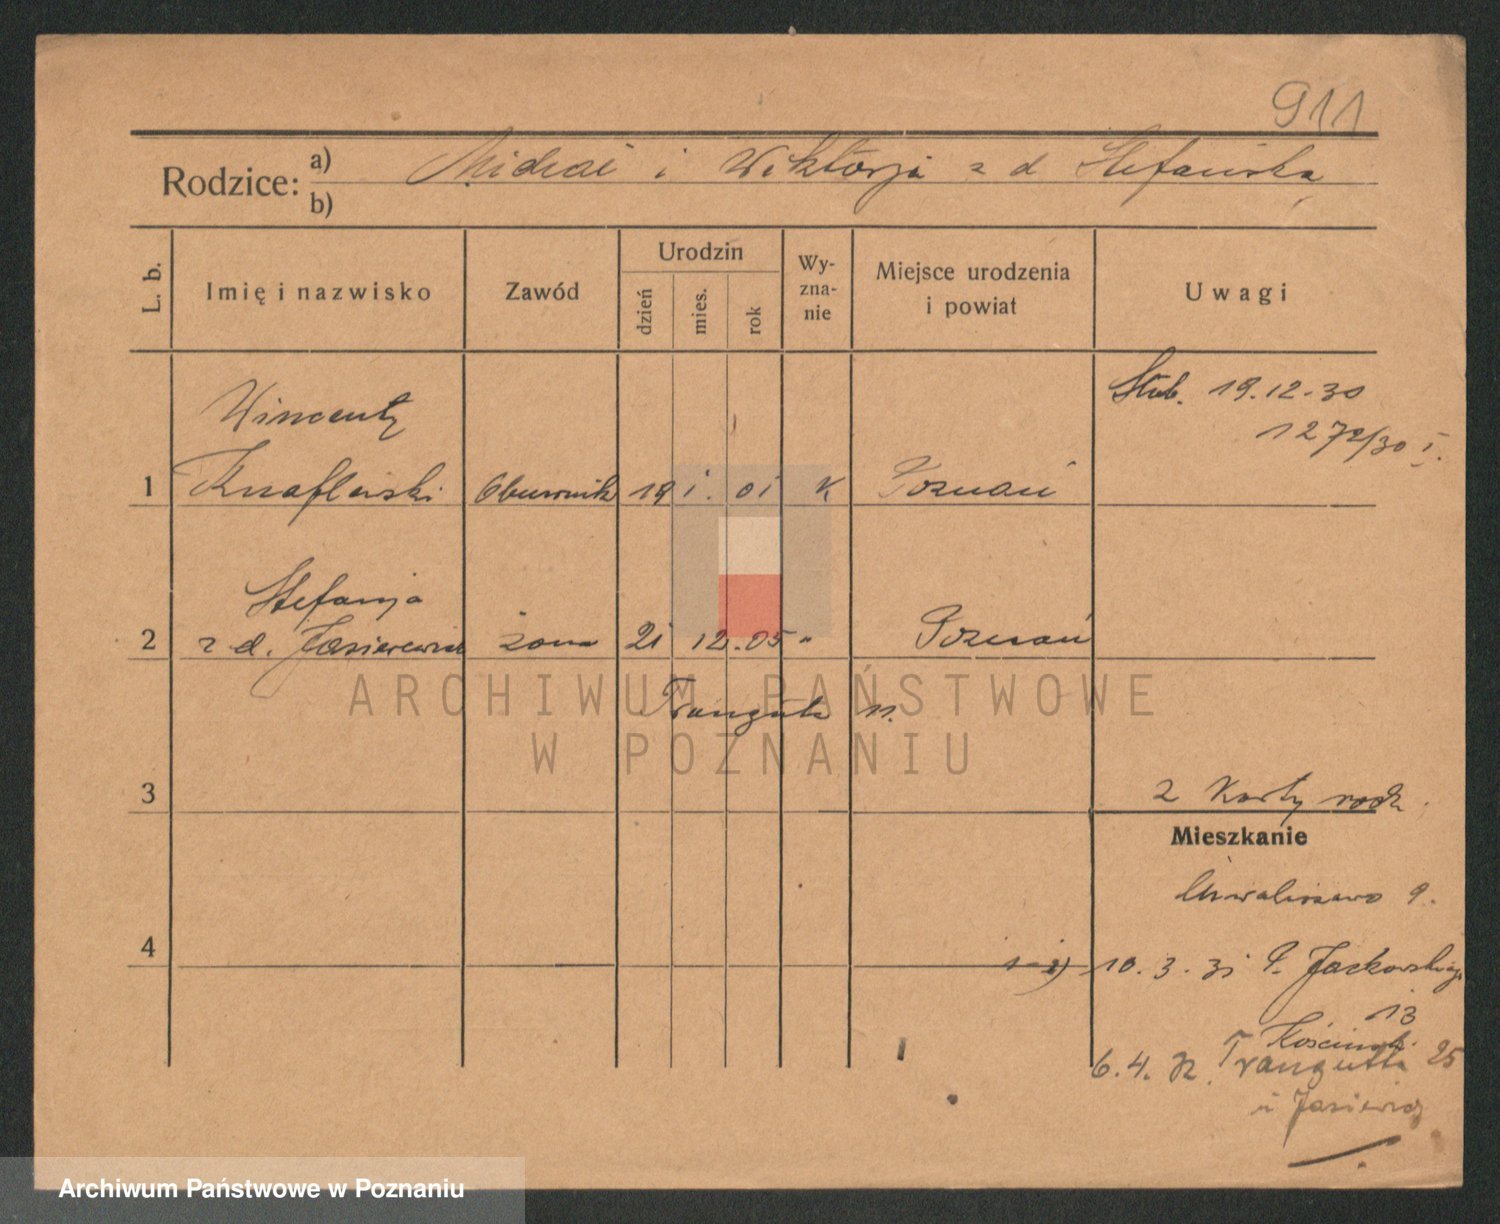 911
Rodzice: a) Michał i Wiktorja z d Stefańska
b)
L. b.
Imię i nazwisko
Zawód
Urodzin
dzień
mies.
rok
Wy-
zna-
nie
Miejsce urodzenia
i powiat
Uwagi
Ślub. 19.12.30
1272/30 I.
Wincenty
1 Knaflewski Obuwnik 19 1. 01 K Poznań
Stefanja
2 z d. Jasiewicz żona 21 12.05 " Poznań
ARCHIWUM PAŃSTWOWE
Traugutta 11.
W POZNANIU
3
2 Karty rodz.
Mieszkanie
9.
4
10.3.31 P. Jackowskiego
13
6.4. Traugutta 25
u Jasiewicz
Archiwum Państwowe w Poznaniu